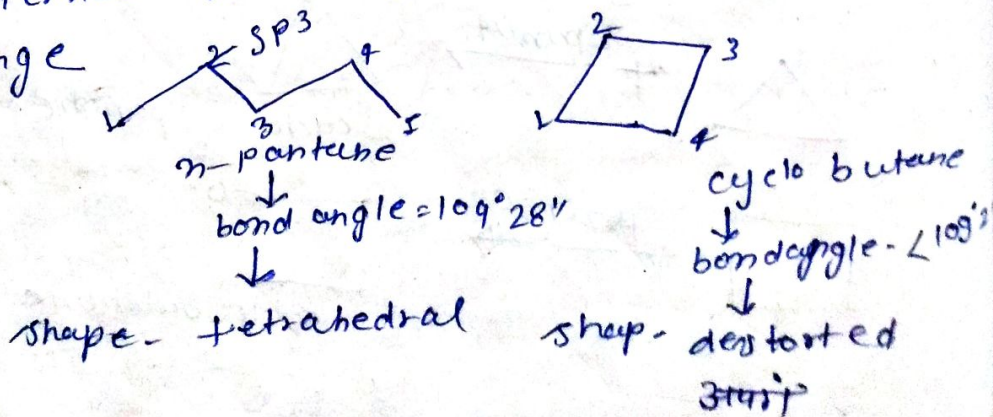 nge
2 SP3
4
1
3
5
n-pantane
bond angle = 109° 28"
shape- tetrahedral
2
3
1
4
cyclo butane
bondangle - <109°
shap- destorted